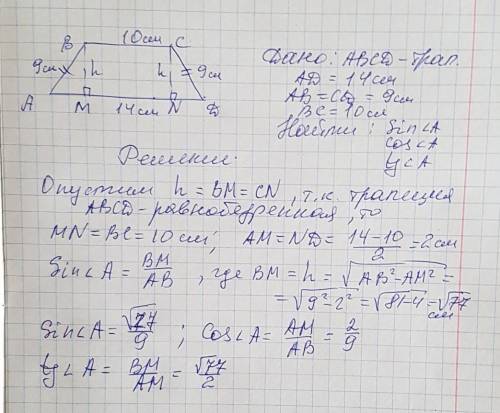 B 10см C
9см h h = 9см
A M 14см N D
Дано: ABCD - трап.
AD = 14см
AB = CD = 9см
BC = 10см
Найти: Sin∠A
cos∠A
tg∠A
Решение.
Опустим h = BM = CN, т.к. трапеция
ABCD - равнобедренная, то
MN = BC = 10см; AM = ND = (14-10)/2 = 2см
Sin∠A = BM/AB, где BM = h = √(AB²-AM²) =
= √(9²-2²) = √(81-4) = √77 см
Sin∠A = √77/9; Cos∠A = AM/AB = 2/9
tg∠A = BM/AM = √77/2